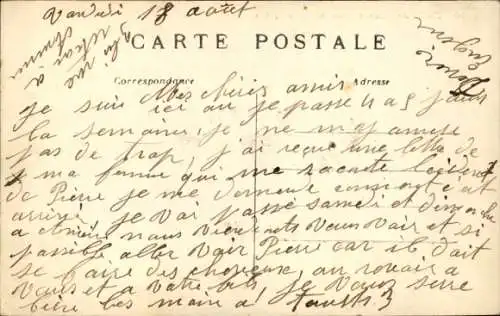 Vandredi 18 août
CARTE POSTALE
Correspondance
Adresse
Mes chers amis
je suis ici ou je passe 4 a 5 jours
la semaine, je ne m'y amuse
pas de trop, j'ai reçue une lettre de
ma femme qui me raconte l'accident
de Pierre je me demande comment c'est
arrivé je vai passé samedi et dimanche
a nous viendront vous voir et si
possible aller voir Pierre car il doit
se faire des cheveux, au revoir a
vous et a votre fils, je vous serre
bien les main a tous